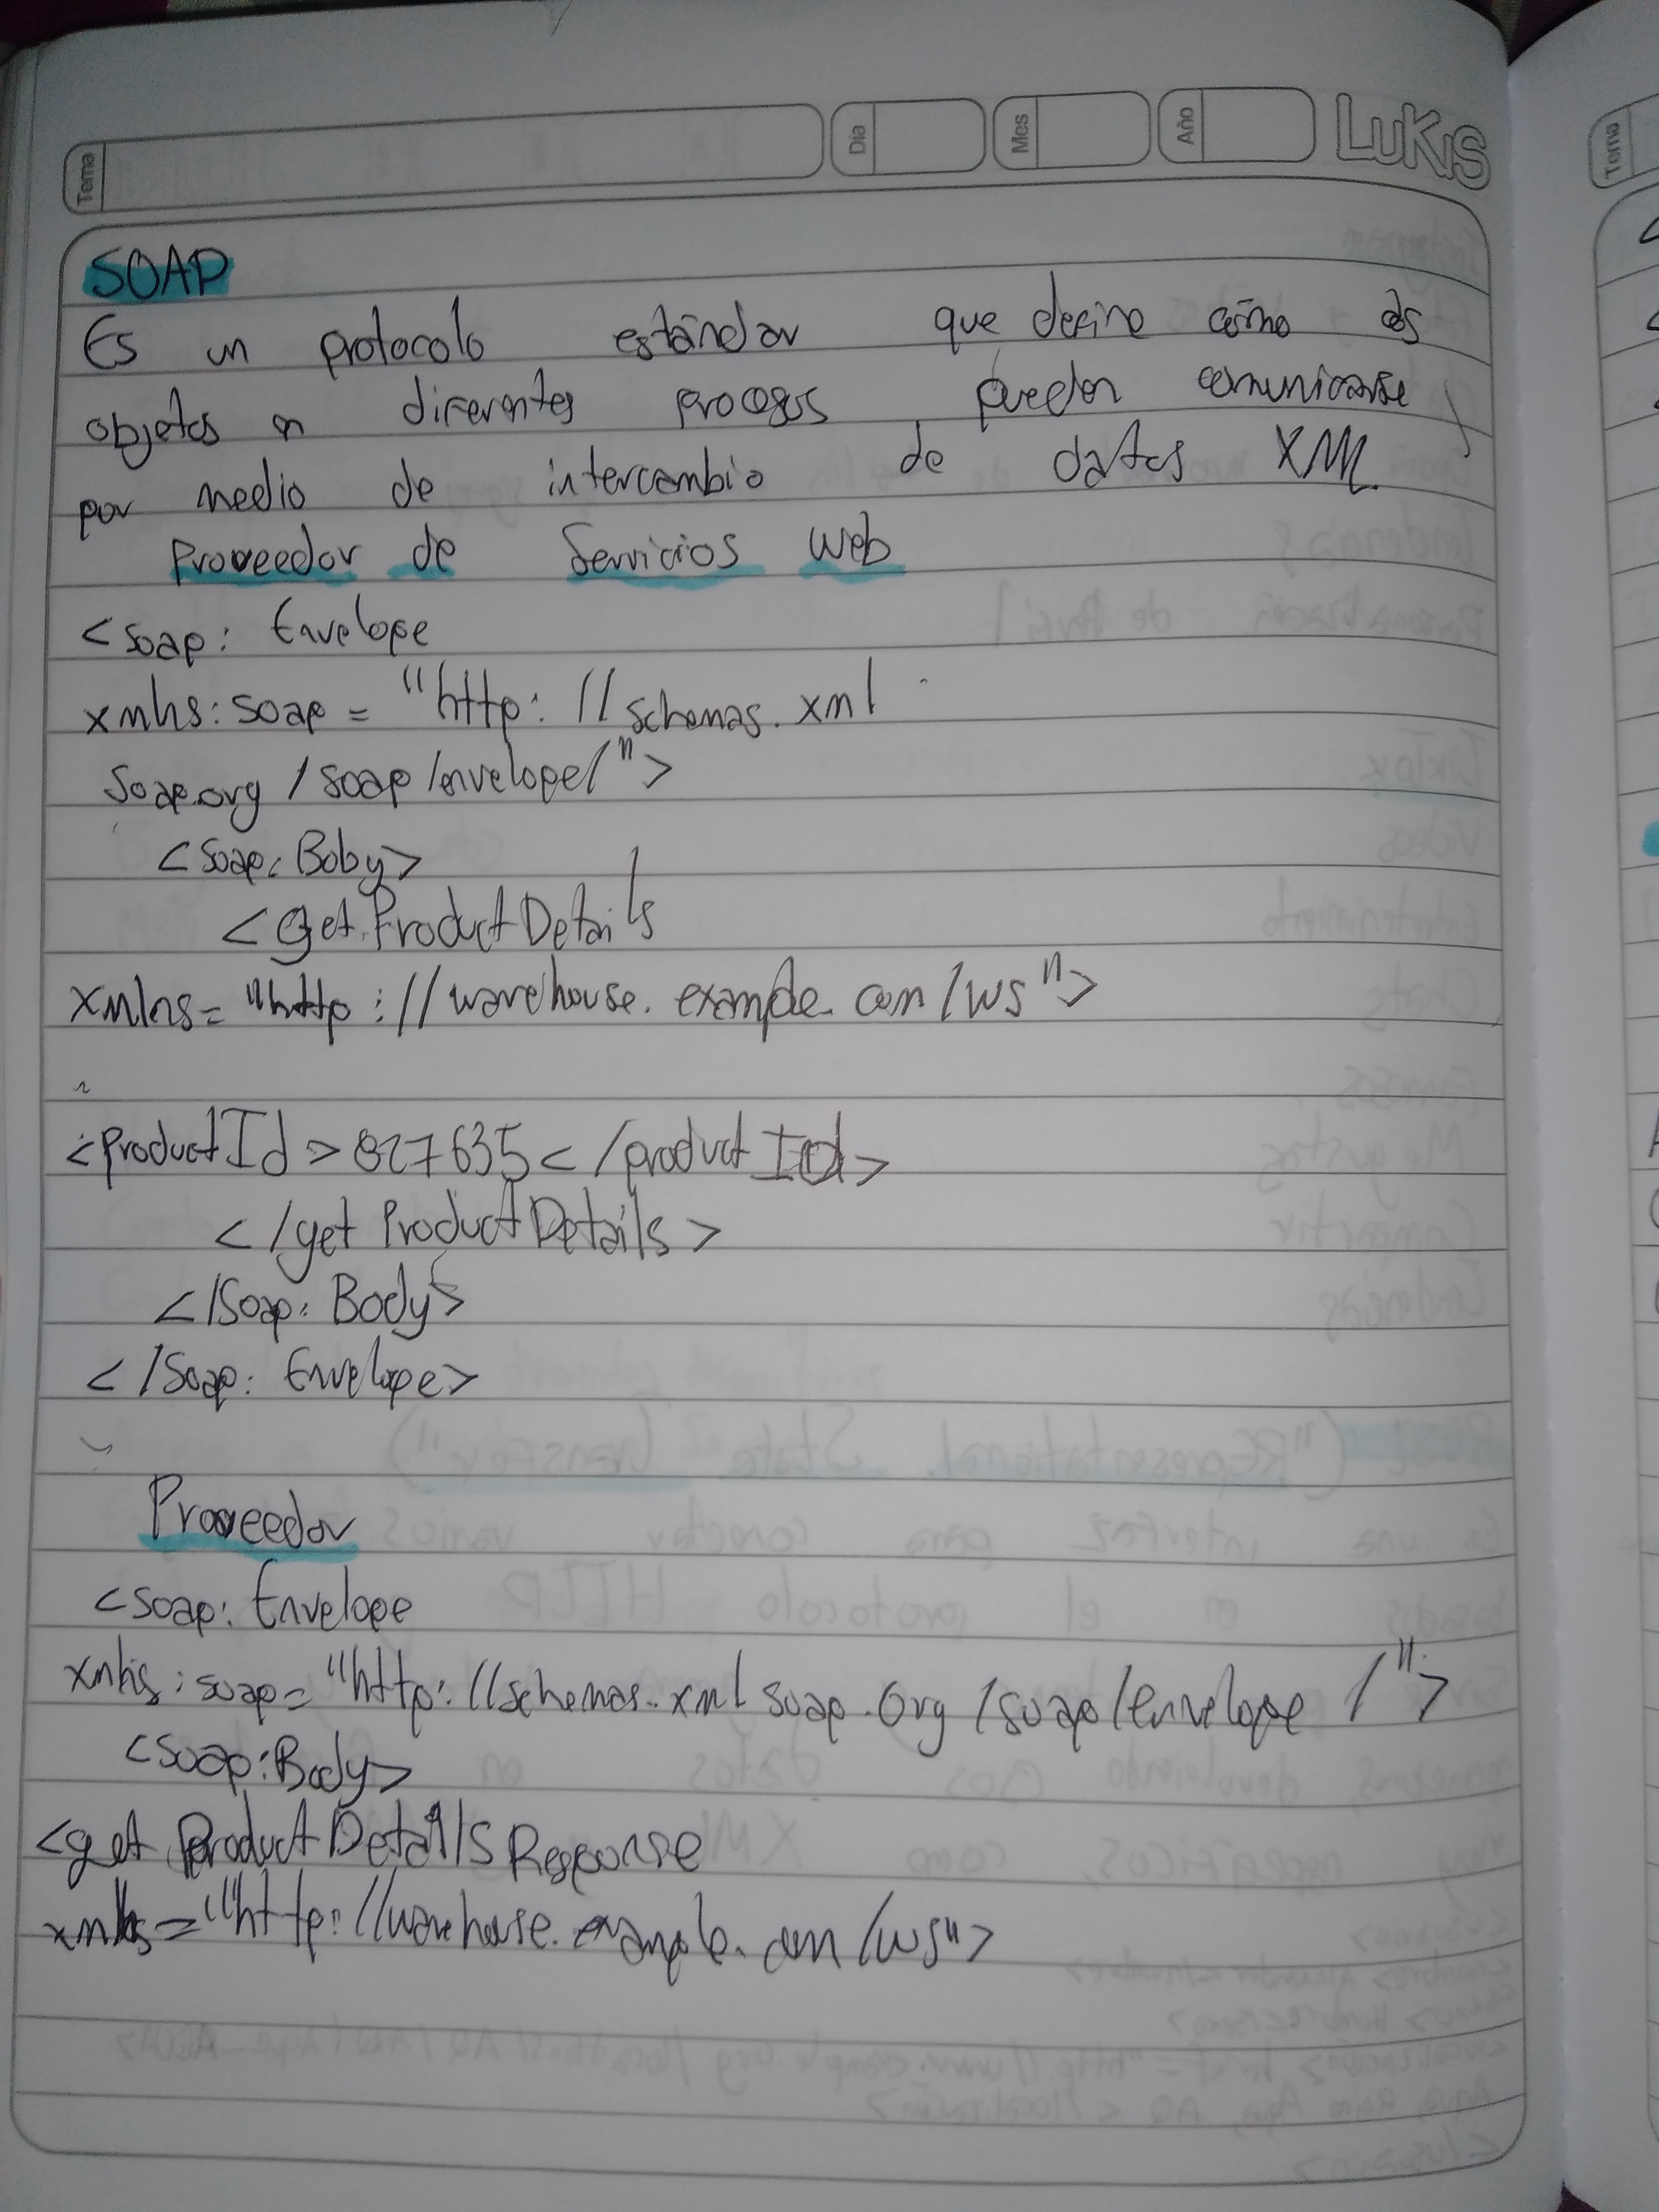 Tema Día Mes Año LUKIS
SOAP
Es un protocolo estándar que define cómo dos
objetos en diferentes procesos pueden comunicarse
por medio de intercambio de datos XML
Proveedor de Servicios Web
<soap: Envelope
xmlns:soap = "http: // schemas. xml
Soap.org / soap /envelope/">
<soap: Boby>
<get ProductDetails
xmlns= "http ://warehouse. example. com /ws">
<ProductId > 827635< /product Id>
</get ProductDetails>
</Soap: Body>
</Soap: Envelope>
Proveedor
<soap: Envelope
xmlns:soap= "http://schemas.xml soap.org /soap/envelope /">
<soap:Body>
<get ProductDetailsResponse
xmlns="http://warehouse.example.com/ws">
Tema